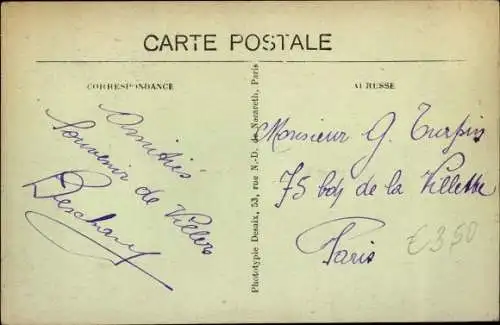 CARTE POSTALE
CORRESPONDANCE
ADRESSE
Amitiés
Souvenir de Villers
Deschamps
Phototypie Desaix, 53, rue N.-D. de Nazareth, Paris
Monsieur G. Turpin
75 bd de la Villette
Paris
€3,50